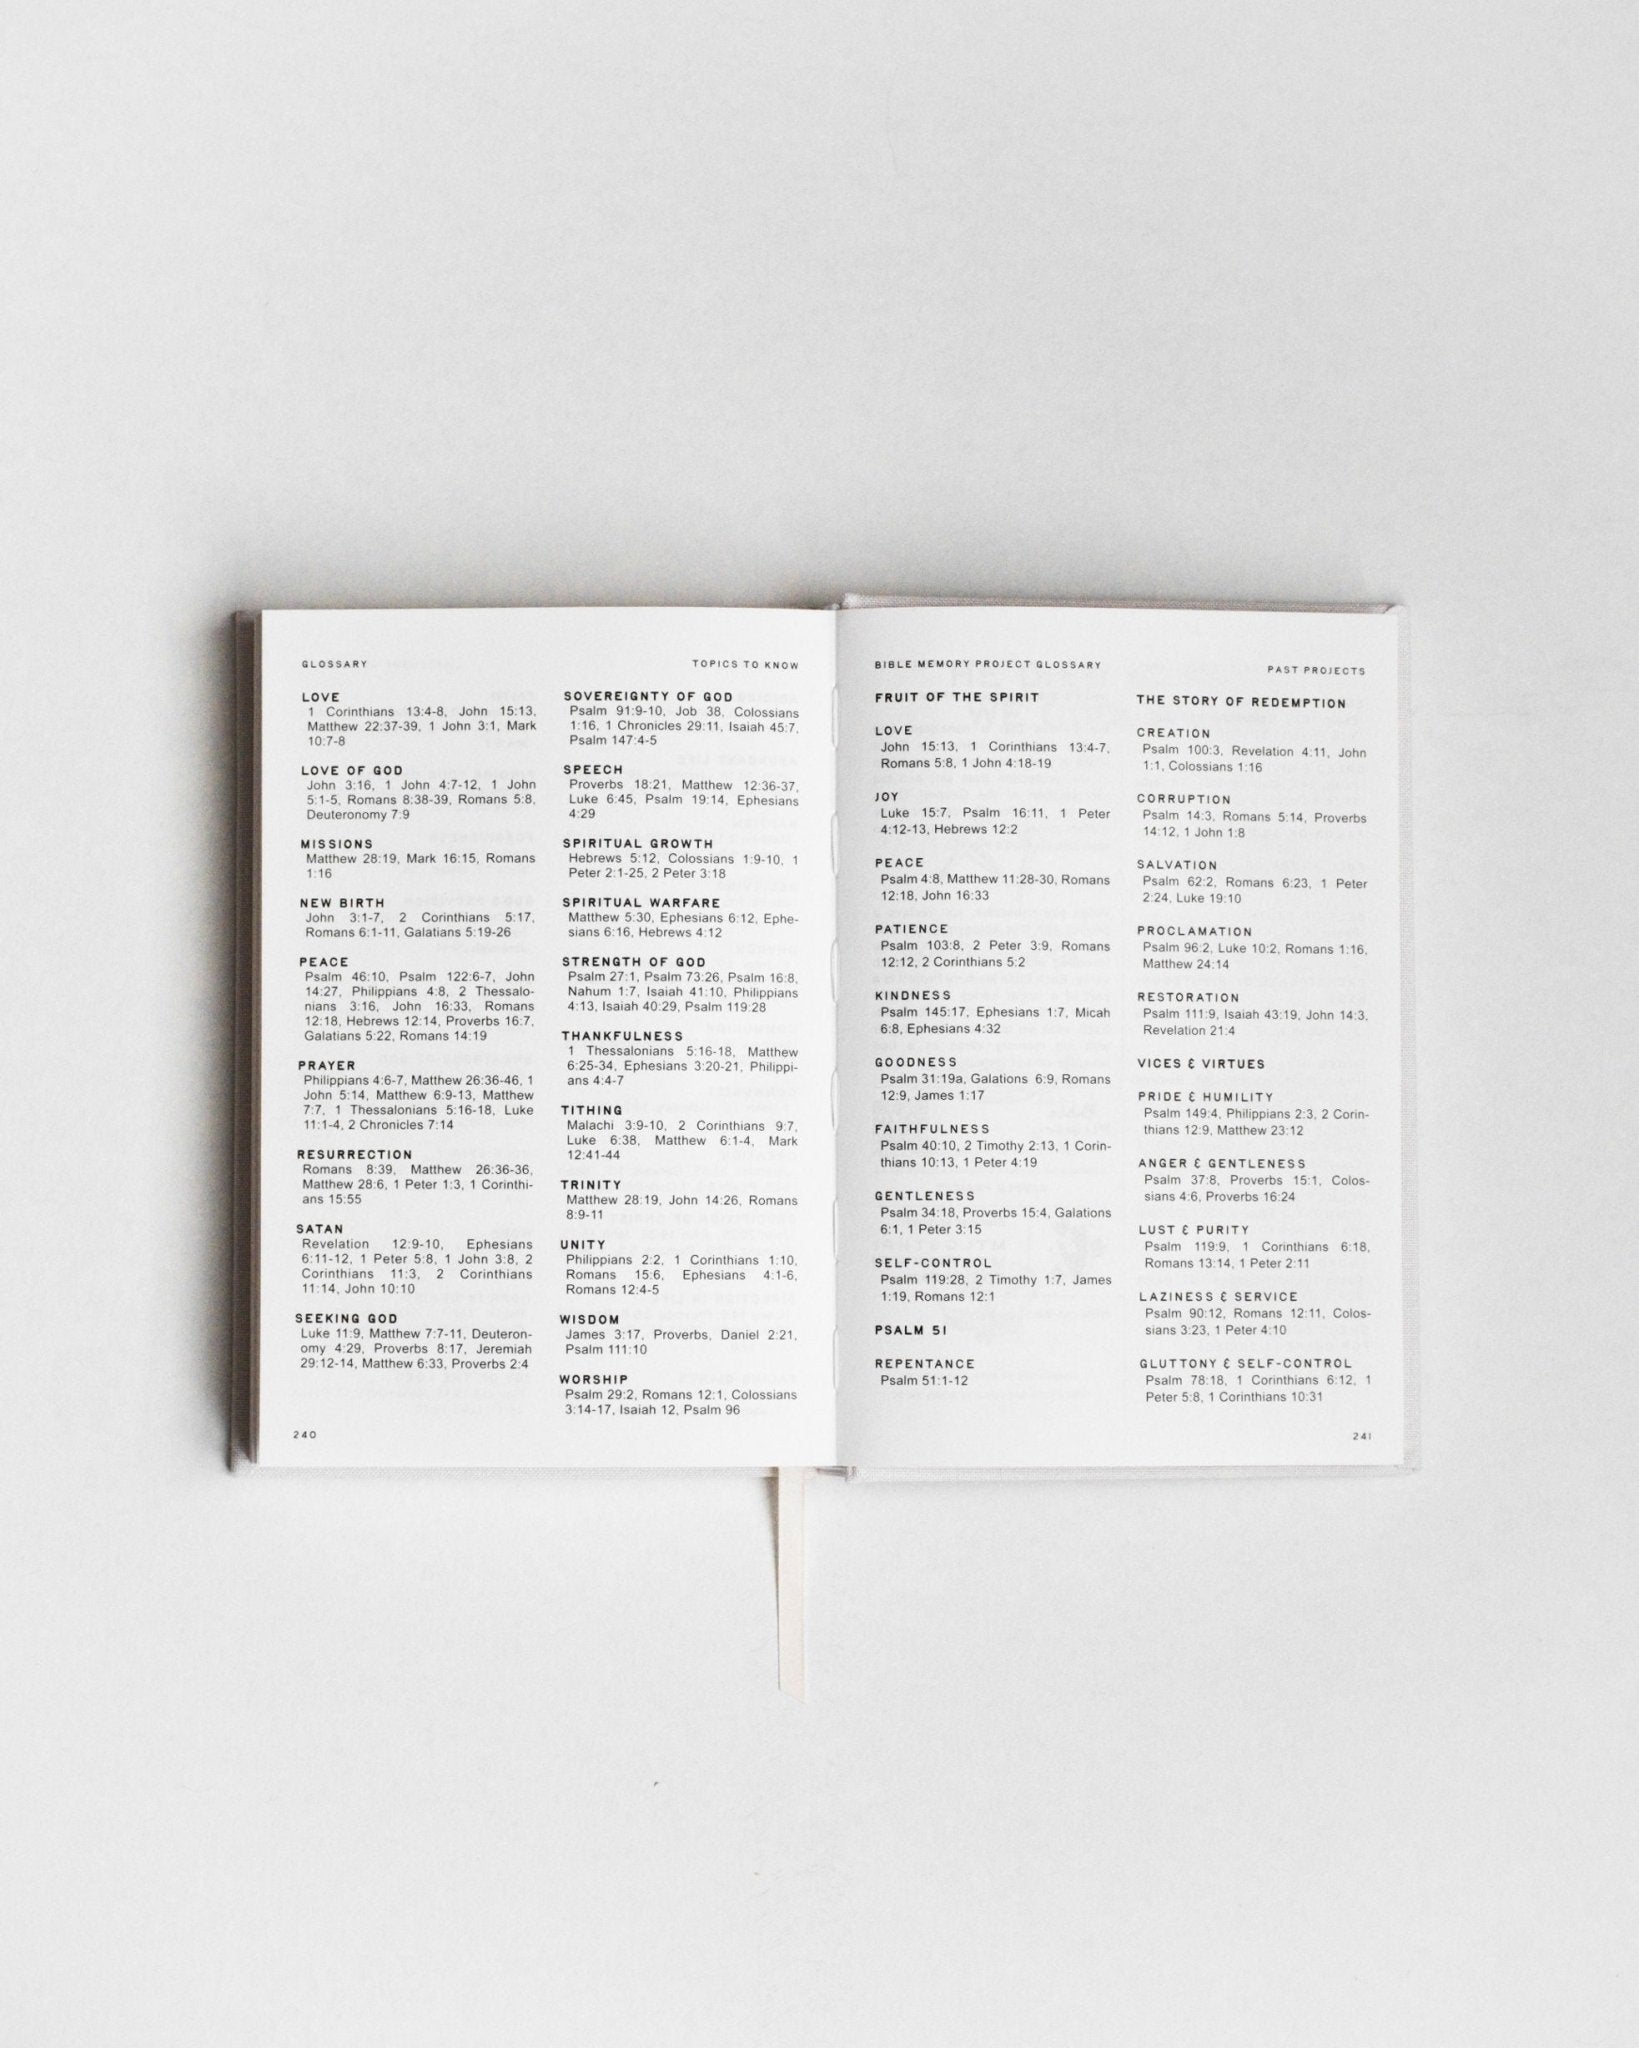 GLOSSARY
TOPICS TO KNOW
LOVE
1 Corinthians 13:4-8, John 15:13,
Matthew 22:37-39, 1 John 3:1, Mark
10:7-8
LOVE OF GOD
John 3:16, 1 John 4:7-12, 1 John
5:1-5, Romans 8:38-39, Romans 5:8,
Deuteronomy 7:9
MISSIONS
Matthew 28:19, Mark 16:15, Romans
1:16
NEW BIRTH
John 3:1-7, 2 Corinthians 5:17,
Romans 6:1-11, Galatians 5:19-26
PEACE
Psalm 46:10, Psalm 122:6-7, John
14:27, Philippians 4:8, 2 Thessalo-
nians 3:16, John 16:33, Romans
12:18, Hebrews 12:14, Proverbs 16:7,
Galatians 5:22, Romans 14:19
PRAYER
Philippians 4:6-7, Matthew 26:36-46, 1
John 5:14, Matthew 6:9-13, Matthew
7:7, 1 Thessalonians 5:16-18, Luke
11:1-4, 2 Chronicles 7:14
RESURRECTION
Romans 8:39, Matthew 26:36-36,
Matthew 28:6, 1 Peter 1:3, 1 Corinthi-
ans 15:55
SATAN
Revelation 12:9-10, Ephesians
6:11-12, 1 Peter 5:8, 1 John 3:8, 2
Corinthians 11:3, 2 Corinthians
11:14, John 10:10
SEEKING GOD
Luke 11:9, Matthew 7:7-11, Deuteron-
omy 4:29, Proverbs 8:17, Jeremiah
29:12-14, Matthew 6:33, Proverbs 2:4
SOVEREIGNTY OF GOD
Psalm 91:9-10, Job 38, Colossians
1:16, 1 Chronicles 29:11, Isaiah 45:7,
Psalm 147:4-5
SPEECH
Proverbs 18:21, Matthew 12:36-37,
Luke 6:45, Psalm 19:14, Ephesians
4:29
SPIRITUAL GROWTH
Hebrews 5:12, Colossians 1:9-10, 1
Peter 2:1-25, 2 Peter 3:18
SPIRITUAL WARFARE
Matthew 5:30, Ephesians 6:12, Ephe-
sians 6:16, Hebrews 4:12
STRENGTH OF GOD
Psalm 27:1, Psalm 73:26, Psalm 16:8,
Nahum 1:7, Isaiah 41:10, Philippians
4:13, Isaiah 40:29, Psalm 119:28
THANKFULNESS
1 Thessalonians 5:16-18, Matthew
6:25-34, Ephesians 3:20-21, Philippi-
ans 4:4-7
TITHING
Malachi 3:9-10, 2 Corinthians 9:7,
Luke 6:38, Matthew 6:1-4, Mark
12:41-44
TRINITY
Matthew 28:19, John 14:26, Romans
8:9-11
UNITY
Philippians 2:2, 1 Corinthians 1:10,
Romans 15:6, Ephesians 4:1-6,
Romans 12:4-5
WISDOM
James 3:17, Proverbs, Daniel 2:21,
Psalm 111:10
WORSHIP
Psalm 29:2, Romans 12:1, Colossians
3:14-17, Isaiah 12, Psalm 96
240
BIBLE MEMORY PROJECT GLOSSARY
PAST PROJECTS
FRUIT OF THE SPIRIT
LOVE
John 15:13, 1 Corinthians 13:4-7,
Romans 5:8, 1 John 4:18-19
JOY
Luke 15:7, Psalm 16:11, 1 Peter
4:12-13, Hebrews 12:2
PEACE
Psalm 4:8, Matthew 11:28-30, Romans
12:18, John 16:33
PATIENCE
Psalm 103:8, 2 Peter 3:9, Romans
12:12, 2 Corinthians 5:2
KINDNESS
Psalm 145:17, Ephesians 1:7, Micah
6:8, Ephesians 4:32
GOODNESS
Psalm 31:19a, Galations 6:9, Romans
12:9, James 1:17
FAITHFULNESS
Psalm 40:10, 2 Timothy 2:13, 1 Corin-
thians 10:13, 1 Peter 4:19
GENTLENESS
Psalm 34:18, Proverbs 15:4, Galations
6:1, 1 Peter 3:15
SELF-CONTROL
Psalm 119:28, 2 Timothy 1:7, James
1:19, Romans 12:1
PSALM 51
REPENTANCE
Psalm 51:1-12
THE STORY OF REDEMPTION
CREATION
Psalm 100:3, Revelation 4:11, John
1:1, Colossians 1:16
CORRUPTION
Psalm 14:3, Romans 5:14, Proverbs
14:12, 1 John 1:8
SALVATION
Psalm 62:2, Romans 6:23, 1 Peter
2:24, Luke 19:10
PROCLAMATION
Psalm 96:2, Luke 10:2, Romans 1:16,
Matthew 24:14
RESTORATION
Psalm 111:9, Isaiah 43:19, John 14:3,
Revelation 21:4
VICES & VIRTUES
PRIDE & HUMILITY
Psalm 149:4, Philippians 2:3, 2 Corin-
thians 12:9, Matthew 23:12
ANGER & GENTLENESS
Psalm 37:8, Proverbs 15:1, Colos-
sians 4:6, Proverbs 16:24
LUST & PURITY
Psalm 119:9, 1 Corinthians 6:18,
Romans 13:14, 1 Peter 2:11
LAZINESS & SERVICE
Psalm 90:12, Romans 12:11, Colos-
sians 3:23, 1 Peter 4:10
GLUTTONY & SELF-CONTROL
Psalm 78:18, 1 Corinthians 6:12, 1
Peter 5:8, 1 Corinthians 10:31
241